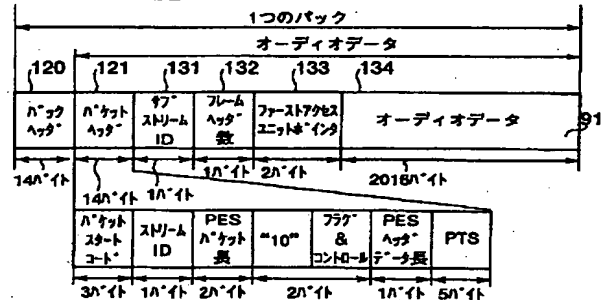 1つのパック
オーディオデータ
120 121 131 132 133 134
パック
ヘッダ
パケット
ヘッダ
サブ
ストリーム
ID
フレーム
ヘッダ
数
ファーストアクセス
ユニットポインタ
オーディオデータ
91
14バイト
14バイト
1バイト
1バイト
2バイト
2016バイト
パケット
スタート
コード
ストリーム
ID
PES
パケット
長
“10”
フラグ
&
コントロール
PES
ヘッダ
データ長
PTS
3バイト
1バイト
2バイト
2バイト
1バイト
5バイト